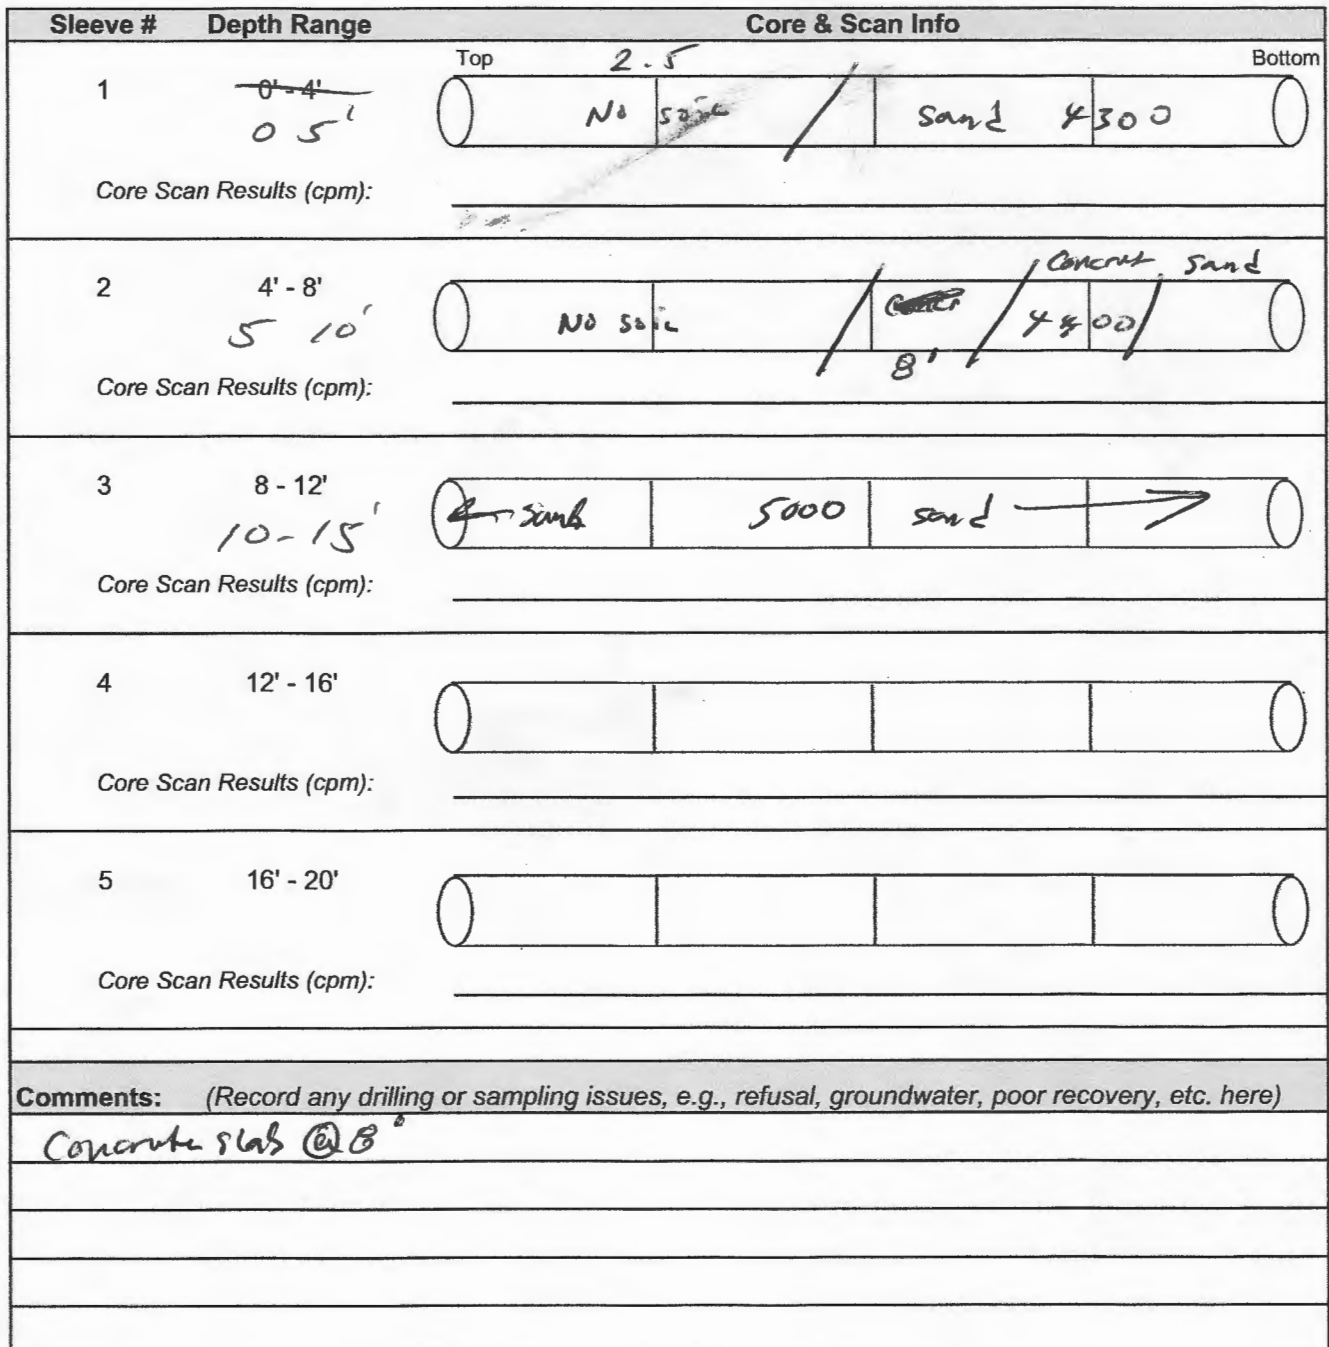 Sleeve # Depth Range Core & Scan Info
Top 2.5 Bottom
1 0' - 4' No soil / sand 4300
0 5'
Core Scan Results (cpm):
Concrete sand
2 4' - 8' No soil
5 10'
8'
Core Scan Results (cpm):
3 8 - 12' ← sand 5000 sand →
10-15'
Core Scan Results (cpm):
4 12' - 16'
Core Scan Results (cpm):
5 16' - 20'
Core Scan Results (cpm):
Comments: (Record any drilling or sampling issues, e.g., refusal, groundwater, poor recovery, etc. here)
Concrete slab @ 8'